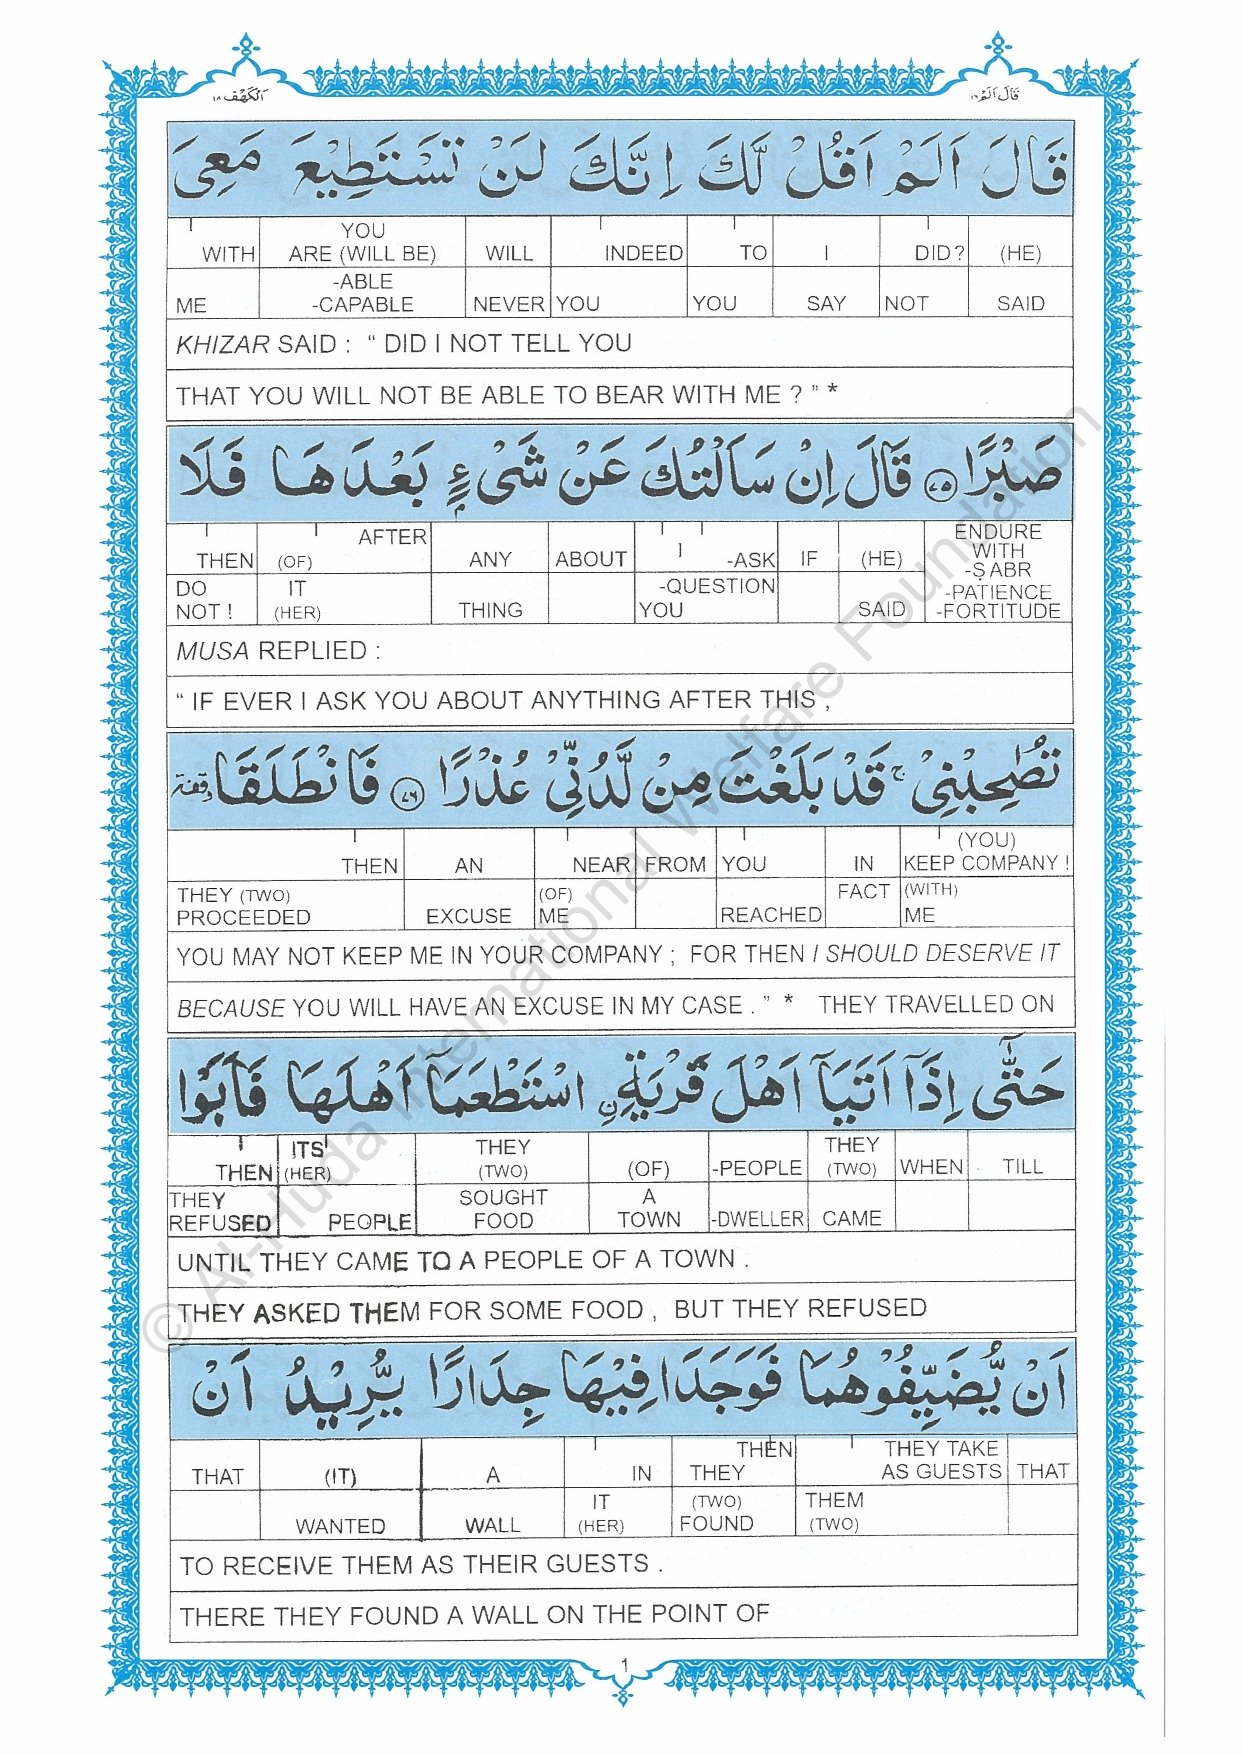 اَلْكَهْف ١٨
قَالَ اَلَمْ ١٦
قَالَ اَلَمْ اَقُلْ لَّكَ اِنَّكَ لَنْ تَسْتَطِيْعَ مَعِىَ
WITH YOU ARE (WILL BE) WILL INDEED TO I DID? (HE)
ME -ABLE -CAPABLE NEVER YOU YOU SAY NOT SAID
KHIZAR SAID : “ DID I NOT TELL YOU
THAT YOU WILL NOT BE ABLE TO BEAR WITH ME ? ” *
صَبْرًا ٧٥ قَالَ اِنْ سَاَلْتُكَ عَنْ شَىْءٍۭ بَعْدَهَا فَلَا
THEN (OF) AFTER ANY ABOUT I -ASK IF (HE) ENDURE WITH -ṢABR
DO NOT ! IT (HER) THING -QUESTION YOU SAID -PATIENCE -FORTITUDE
MUSA REPLIED :
“ IF EVER I ASK YOU ABOUT ANYTHING AFTER THIS ,
تُصٰحِبْنِىْ ج قَدْ بَلَغْتَ مِنْ لَّدُنِّىْ عُذْرًا ٧٦ فَانْطَلَقَا وقفة
THEN AN NEAR FROM YOU IN (YOU) KEEP COMPANY !
THEY (TWO) PROCEEDED EXCUSE (OF) ME REACHED FACT (WITH) ME
YOU MAY NOT KEEP ME IN YOUR COMPANY ; FOR THEN I SHOULD DESERVE IT
BECAUSE YOU WILL HAVE AN EXCUSE IN MY CASE . ” * THEY TRAVELLED ON
حَتّٰٓى اِذَآ اَتَيَآ اَهْلَ قَرْيَةِ ۨ اسْتَطْعَمَآ اَهْلَهَا فَاَبَوْا
THEN ITS (HER) THEY (TWO) (OF) -PEOPLE THEY (TWO) WHEN TILL
THEY REFUSED PEOPLE SOUGHT FOOD A TOWN -DWELLER CAME
UNTIL THEY CAME TO A PEOPLE OF A TOWN .
THEY ASKED THEM FOR SOME FOOD , BUT THEY REFUSED
اَنْ يُّضَيِّفُوْهُمَا فَوَجَدَا فِيْهَا جِدَارًا يُّرِيْدُ اَنْ
THAT (IT) A IN THEN THEY THEY TAKE AS GUESTS THAT
WANTED WALL IT (HER) (TWO) FOUND THEM (TWO)
TO RECEIVE THEM AS THEIR GUESTS .
THERE THEY FOUND A WALL ON THE POINT OF
1
© Al-Huda International Welfare Foundation